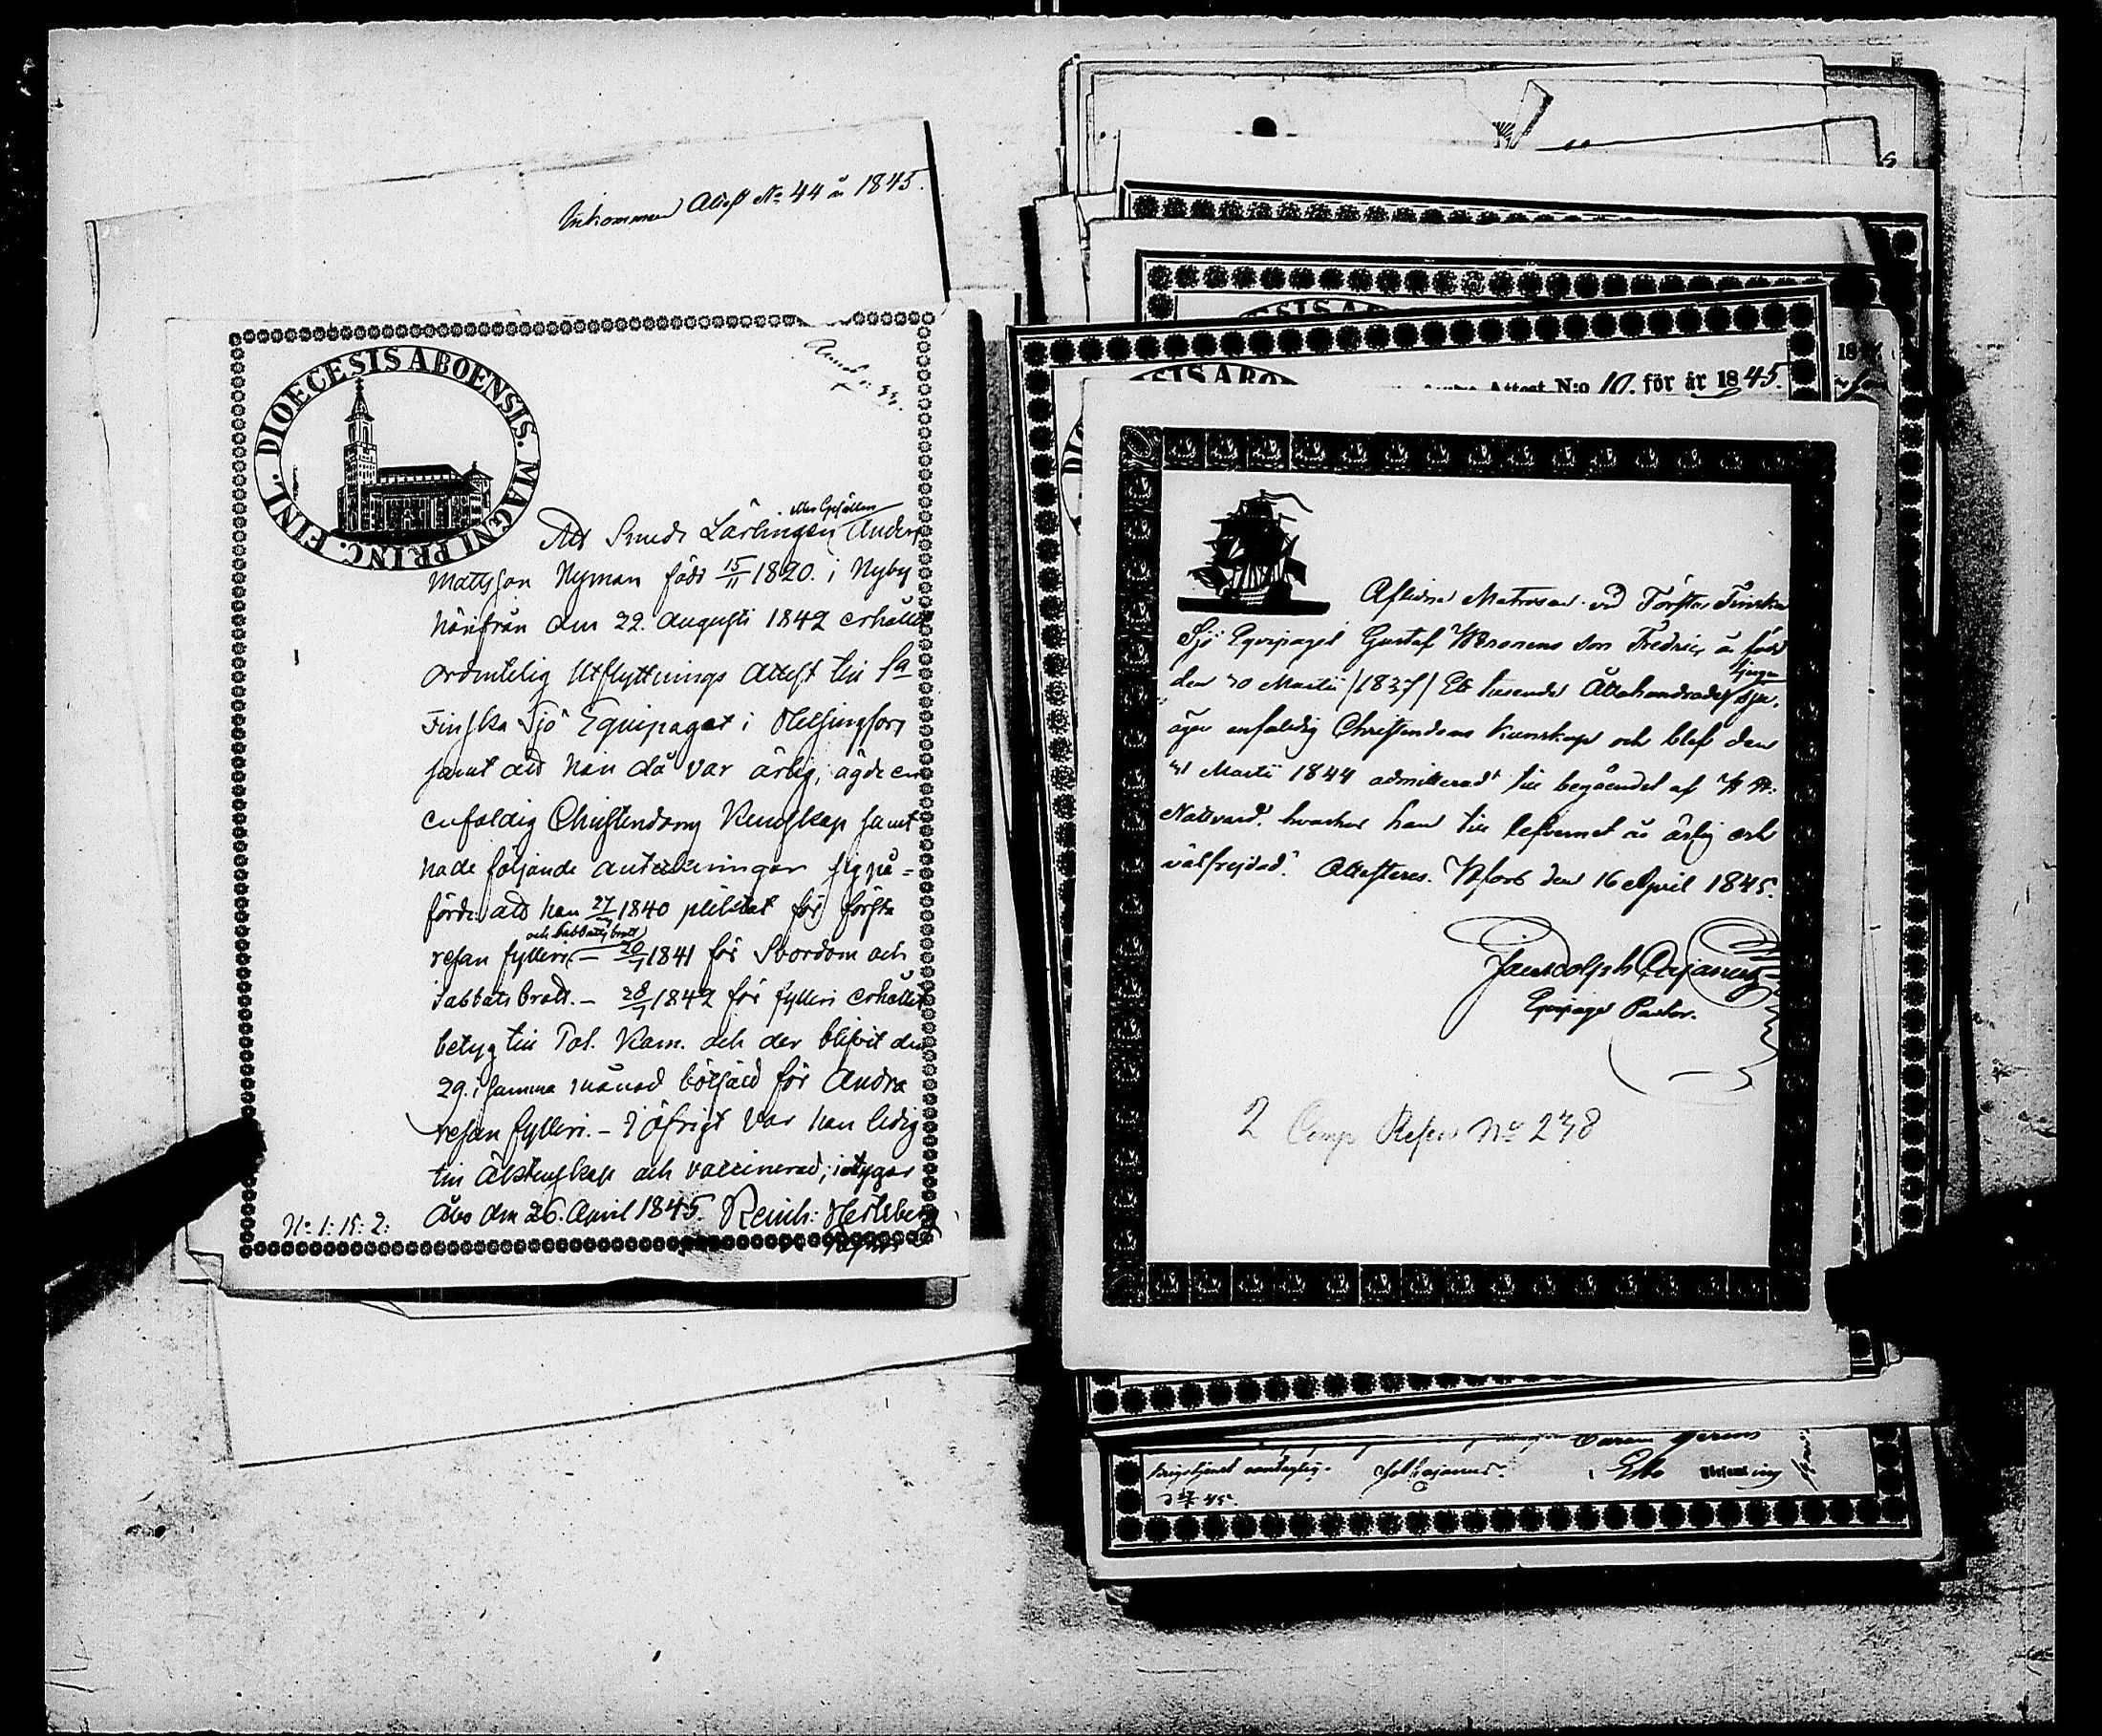 Inkommen Attest No 44 år 1845.
DIOECESIS ABOENSIS. MAGNI PRINC. FINL.
Att Smeds Lärlingen Anders
eller Gesällen
Mattsson Nyman född 15/11 1820. i Nyby
härifrån den 22. Augusti 1842 erhållit
ordentelig Utflyttnings Attest till 1a
Finska Sjö Equipaget i Helsingfors
samt att han då var ärlig, ägde en
enfaldig Christendoms Kunskap samt
hade följande anteckningar sig på-
förde: att han 27/ 1840 pliktat för första
resan fylleri — 20/1 1841 för Svordom och
och Sabbatsbrott
Sabbats brott. — 28/1 1842 för fylleri erhållit
betyg till Pol. Kam. och der blifvit den
29. i samma månad bötfäld för Andra
resan fylleri. — I öfrigt var han ledig
till Äktenskap och vaccinerad; intygar
Åbo den 26. April 1845. Reinh: Hertzberg
No 1: 15: 2:
Attest N:o 10. för år 1845.
Aflidne Matrosen vid Första Finska
Sjö Equipaget Gustaf son Fredric är född
den 30 Martii /1827/ Ett tusende Åttahundrade tjugu
sju,
äger enfaldig Christendoms kunskap och blef den
31 Martii 1844 admitterad till begåendet af H. H.
Nattvard. hvarhos han till lefvernet är ärlig och
välfrejdad. Attesteras. Hfors den 16 April 1845.
Jac. Adolph Cajanus
Equipage Pastor.
2 Comp Reserv No 238
Jak Cajanus.